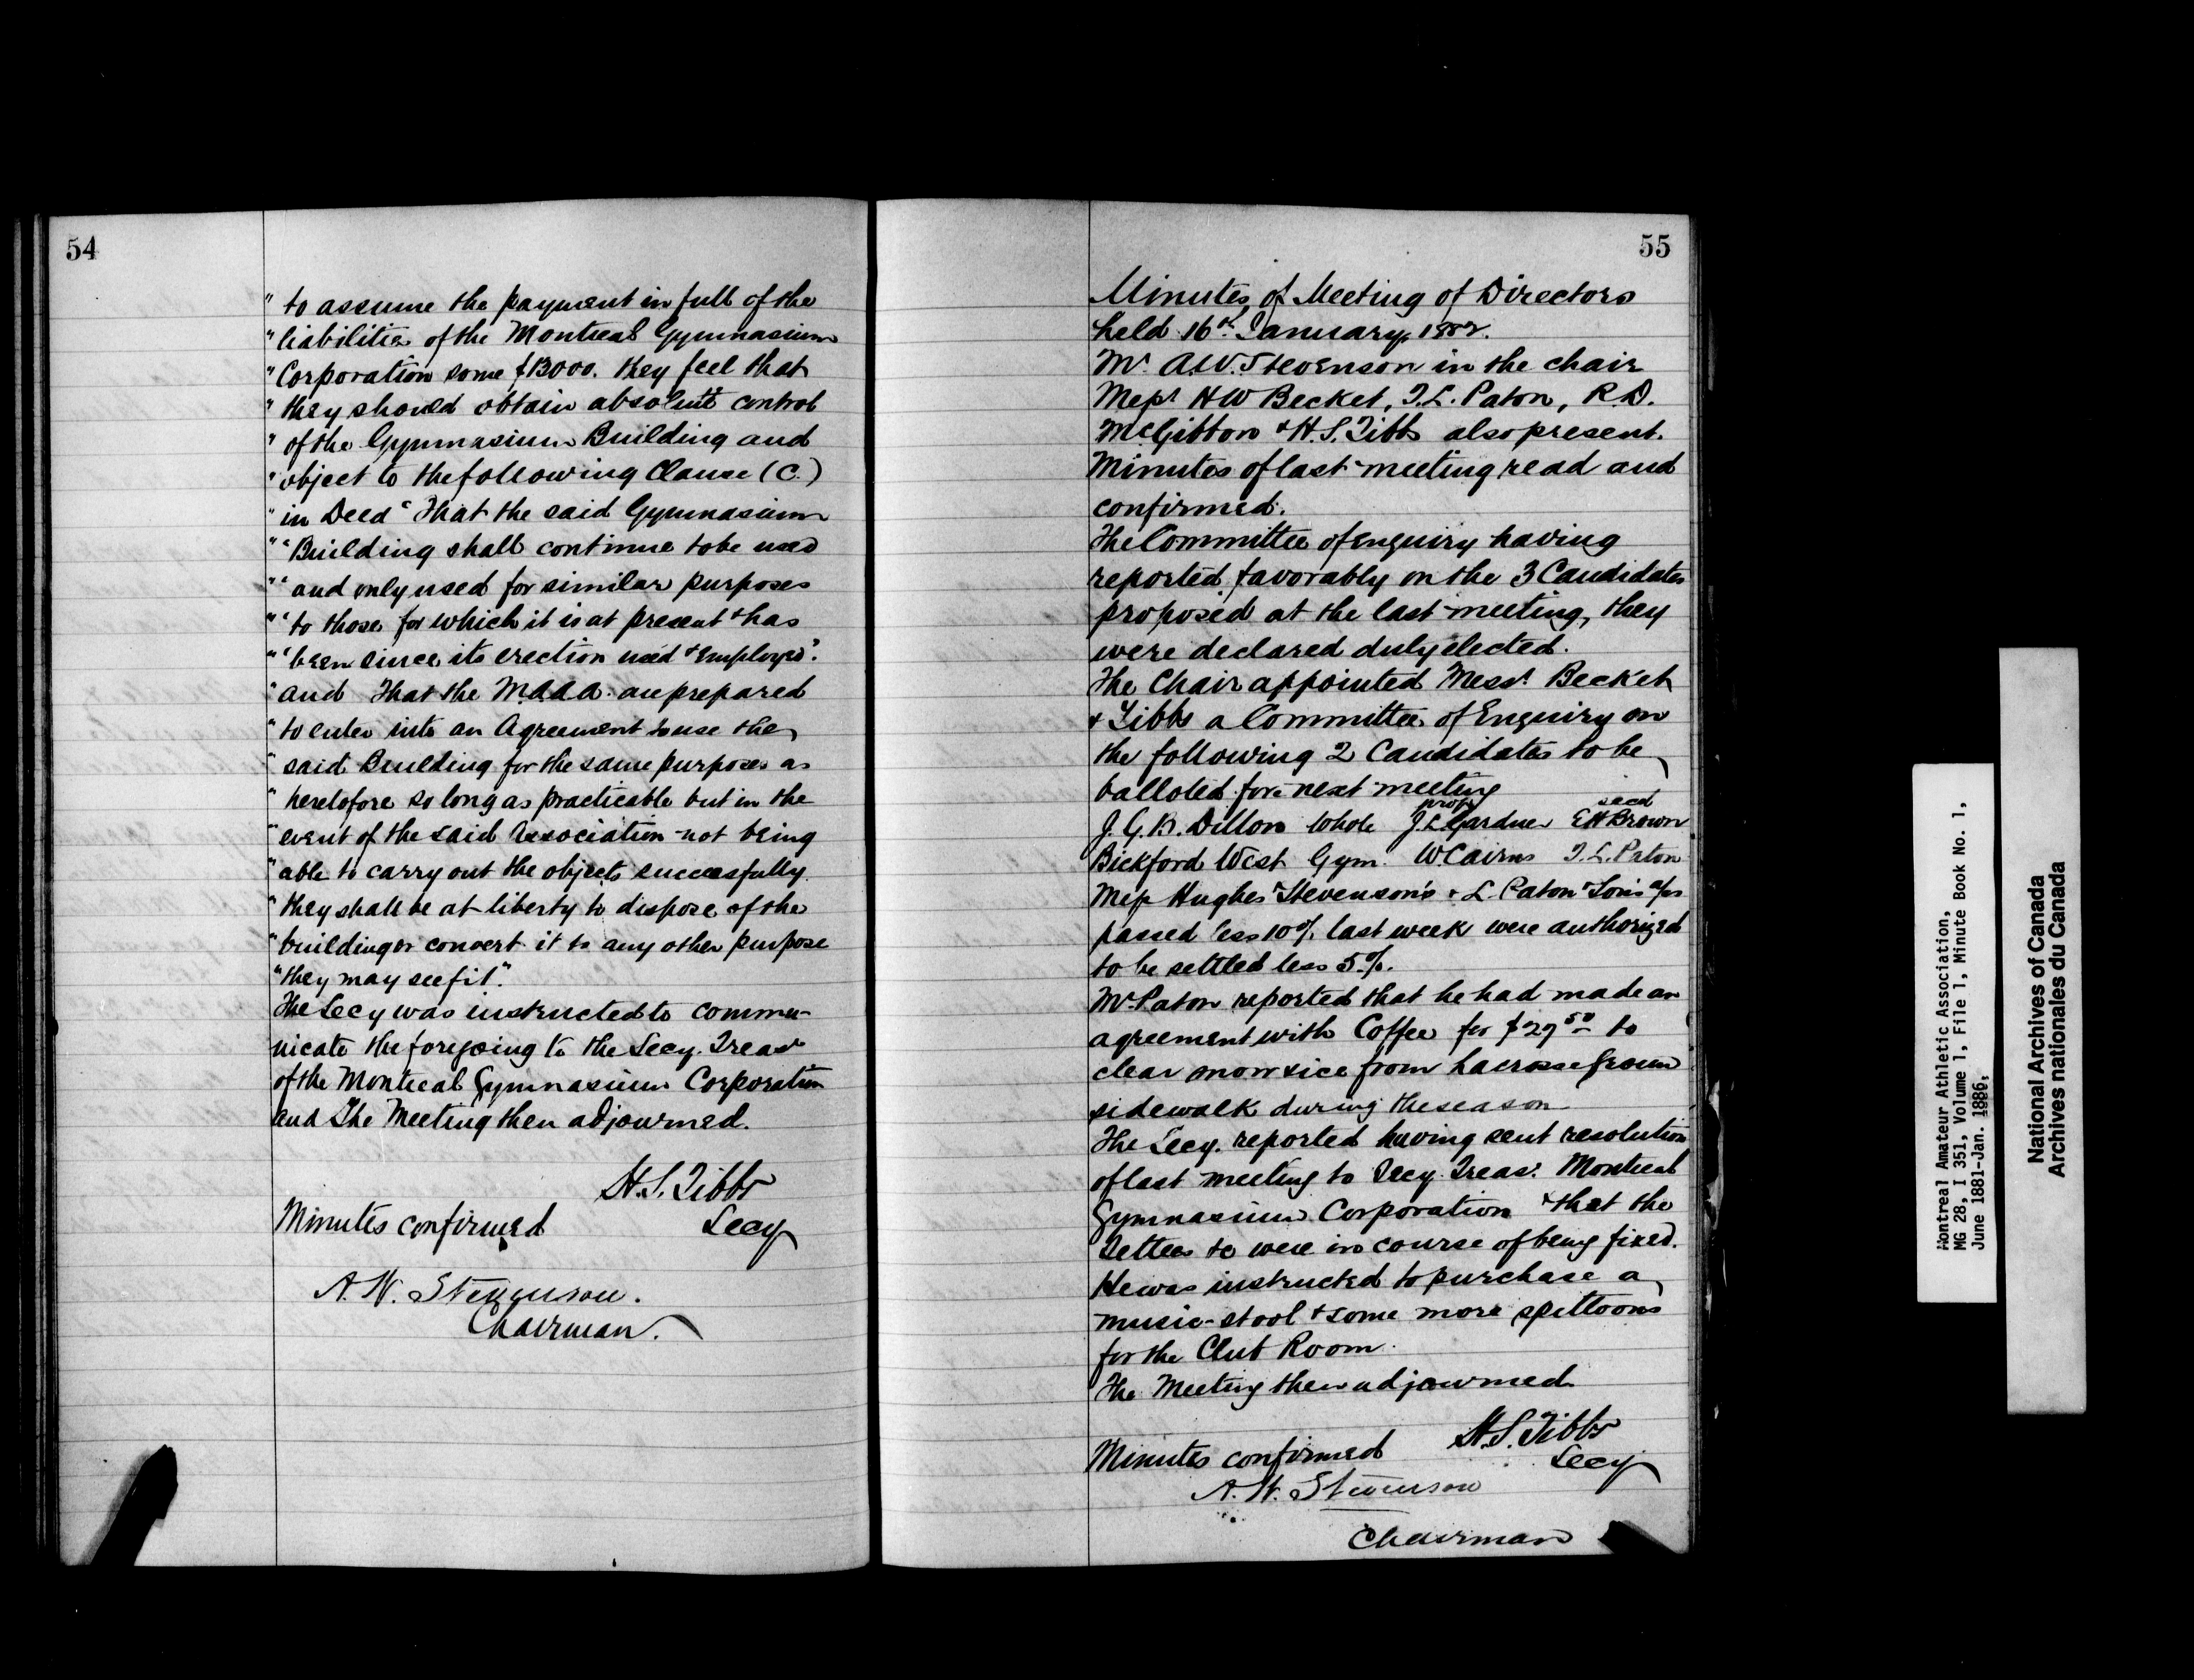 54
" to assume the payment in full of the
" liabilities of the Montreal Gymnasium
" Corporation some $13000. they feel that
" they should obtain absolute control
" of the Gymnasium Building and
" object to the following Clause (C.)
" in Deed "That the said Gymnasium
" " Building shall continue to be used
" " and only used for similar purposes
" " to those for which it is at present & has
" " been since its erection used & employed".
" and That the M.A.A.A. are prepared
" to enter into an Agreement to use the
" said Building for the same purposes as
" heretofore so long as practicable but in the
" event of the said Association not being
" able to carry out the objects successfully
" they shall be at liberty to dispose of the
" building or convert it to any other purpose
" they may see fit".
The Secy was instructed to commu-
nicate the foregoing to the Secy. Treasr
of the Montreal Gymnasium Corporation
and The Meeting then adjourned.
H.S. Tibbs
Secy
Minutes confirmed
A. W. Stevenson.
Chairman.
55
Minutes of Meeting of Directors
held 16th January, 1882.
Mr. A.W. Stevenson in the chair
Messrs H W Becket, T.L. Paton, R.D.
McGibbon & H.S. Tibbs also present.
Minutes of last meeting read and
confirmed.
The Committee of Enquiry having
reported favorably on the 3 Candidates
proposed at the last meeting, they
were declared duly elected.
The Chair appointed Messrs. Becket
& Tibbs a Committee of Enquiry on
the following 2 Candidates to be
balloted for next meeting
prop secd
J. G. B. Dillon Whole J L Gardner E H Brown
Bickford West Gym. W. Cairns T.L. Paton
Mess Hughes & Stevenson's & L. Paton & Son's a/cs
passed less 10% last week were authorized
to be settled less 5%.
Mr. Paton reported that he had made an
agreement with Coffee for $27 50 to
clear snow & ice from Lacrosse Ground
sidewalk during the season
The Secy. reported having sent resolution
of last meeting to Secy. Treasr. Montreal
Gymnasium Corporation & that the
Settees &c were in course of being fixed.
He was instructed to purchase a
music-stool & some more spittoons
for the Club Room.
The Meeting then adjourned
H.S. Tibbs
Secy
Minutes confirmed
A. W. Stevenson
Chairman
Montreal Amateur Athletic Association,
MG 28, I 351, Volume 1, File 1, Minute Book No. 1,
June 1881-Jan. 1886,
National Archives of Canada
Archives nationales du Canada